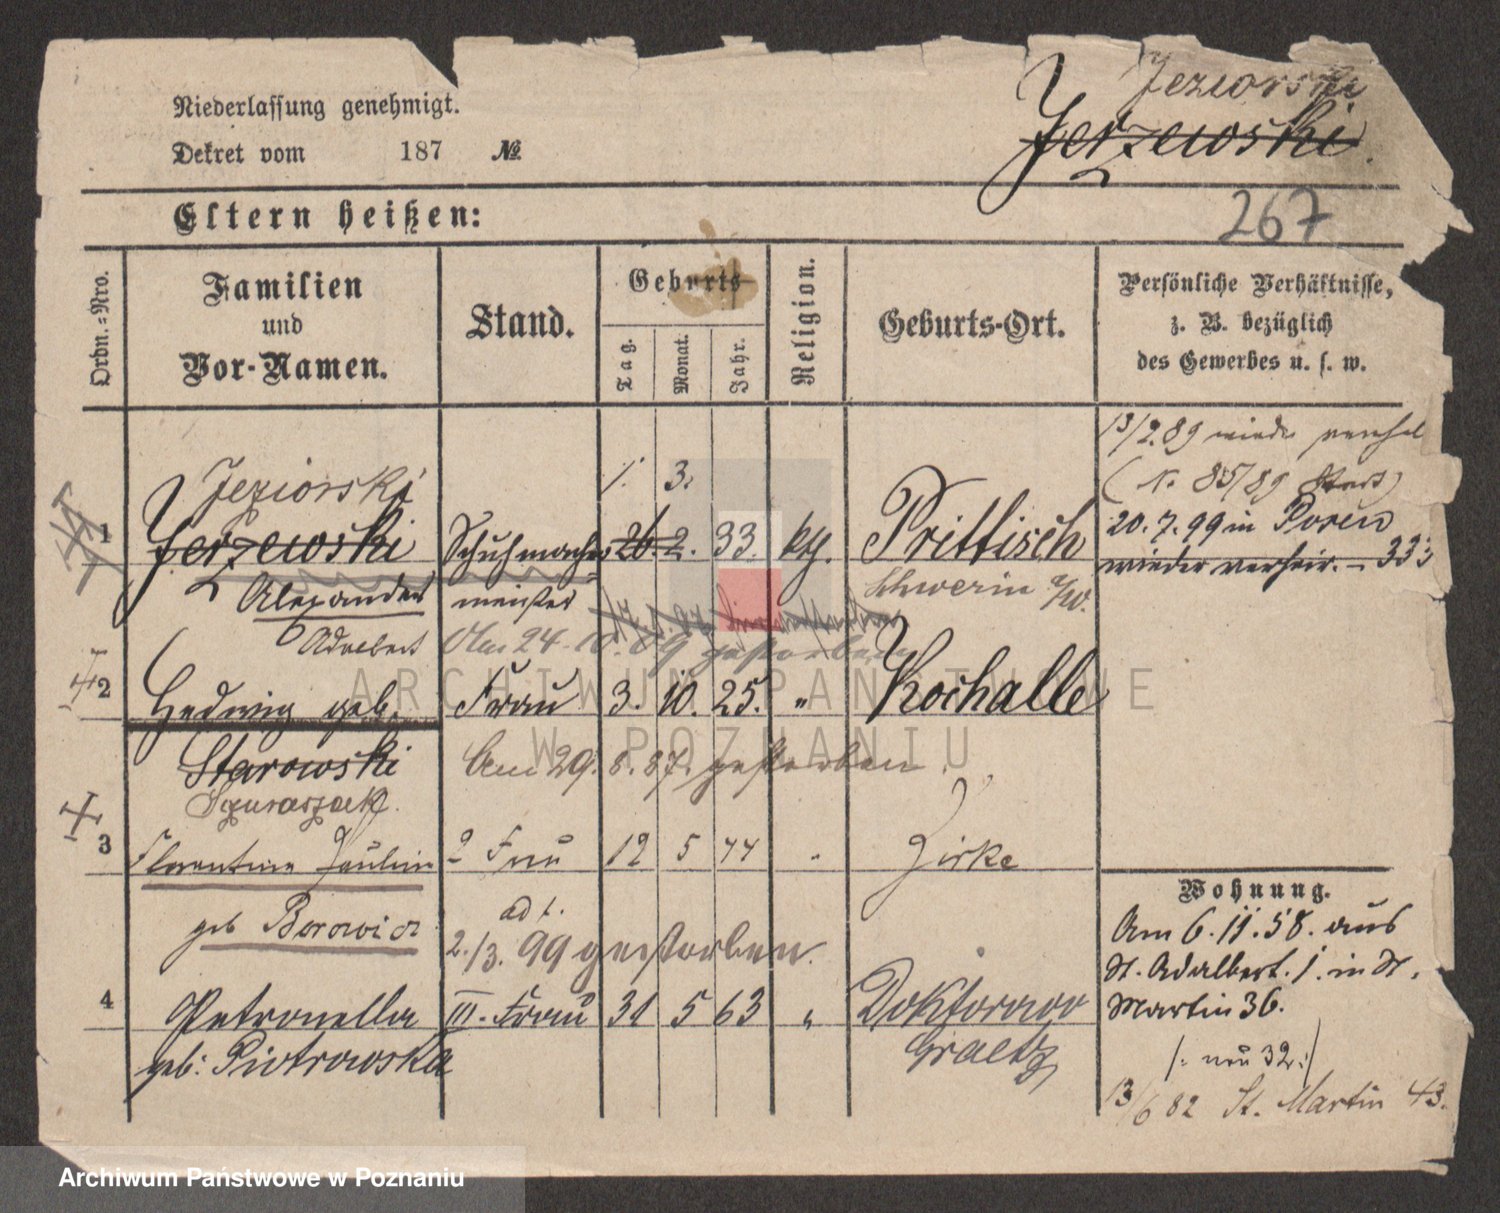 Niederlassung genehmigt.
Dekret vom 187 №
Jeziorski
Jerzewski.
Eltern heißen:
267
Ordn.-Nro.
Familien
und
Vor-Namen.
Stand.
Geburts
Tag.
Monat.
Jahr.
Religion.
Geburts-Ort.
Persönliche Verhältnisse,
z. B. bezüglich
des Gewerbes u. s. w.
13/2.89 wieder verehel
(N. 85/89 Start)
20.7.99 in Posen
wieder verheir. – 33
Jeziorski 1. 3.
1 Jerzewski Schuhmacher 26. 2. 33. kth. Prittisch
Alexander meister Schwerin a/W.
Adalbert Am 24.10.09 gestorben
2 Hedwig geb. Frau 3. 10. 25. " Kochalle
Starowski Am 29. 8. 87. gestorben.
3 Florentine Pauline 2 Frau 12 5 44 " Zirke
geb Borowicz
2./3. 99 gestorben.
4 Petronella III. Frau 31 5 63 " Doktorowo
geb: Piotrowska Graetz
Wohnung.
Am 6.11.58. aus
St. Adalbert. 1. in St.
Martin 36.
/: neu 32 :/
13/6 82 St. Martin 43.
ARCHIWUM PAŃSTWOWE
W POZNANIU
Archiwum Państwowe w Poznaniu